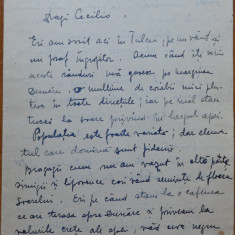 Dragă Cecilio,
Eri am sosit aci în Tulcea, pe un vânt și
un praf îngrozitor. Acum când îți scriu
aceste rânduri mă găsesc pe marginea
Dunării. O mulțime de corăbii mici plu-
tesc în toate direcțiile; iar pe mal stau
turcii la soare privind în largul apei.
Populația este foarte variată; dar elemen
tul care domină sunt jidanii.
Bragagii cum nu am văzut în altă parte
simigii și lipovence cari vând semințe de floarea
soarelui. Eri pe când stam la o cafenea
ce au terasa spre Dunăre și priveam la
valurile ale apei, văd